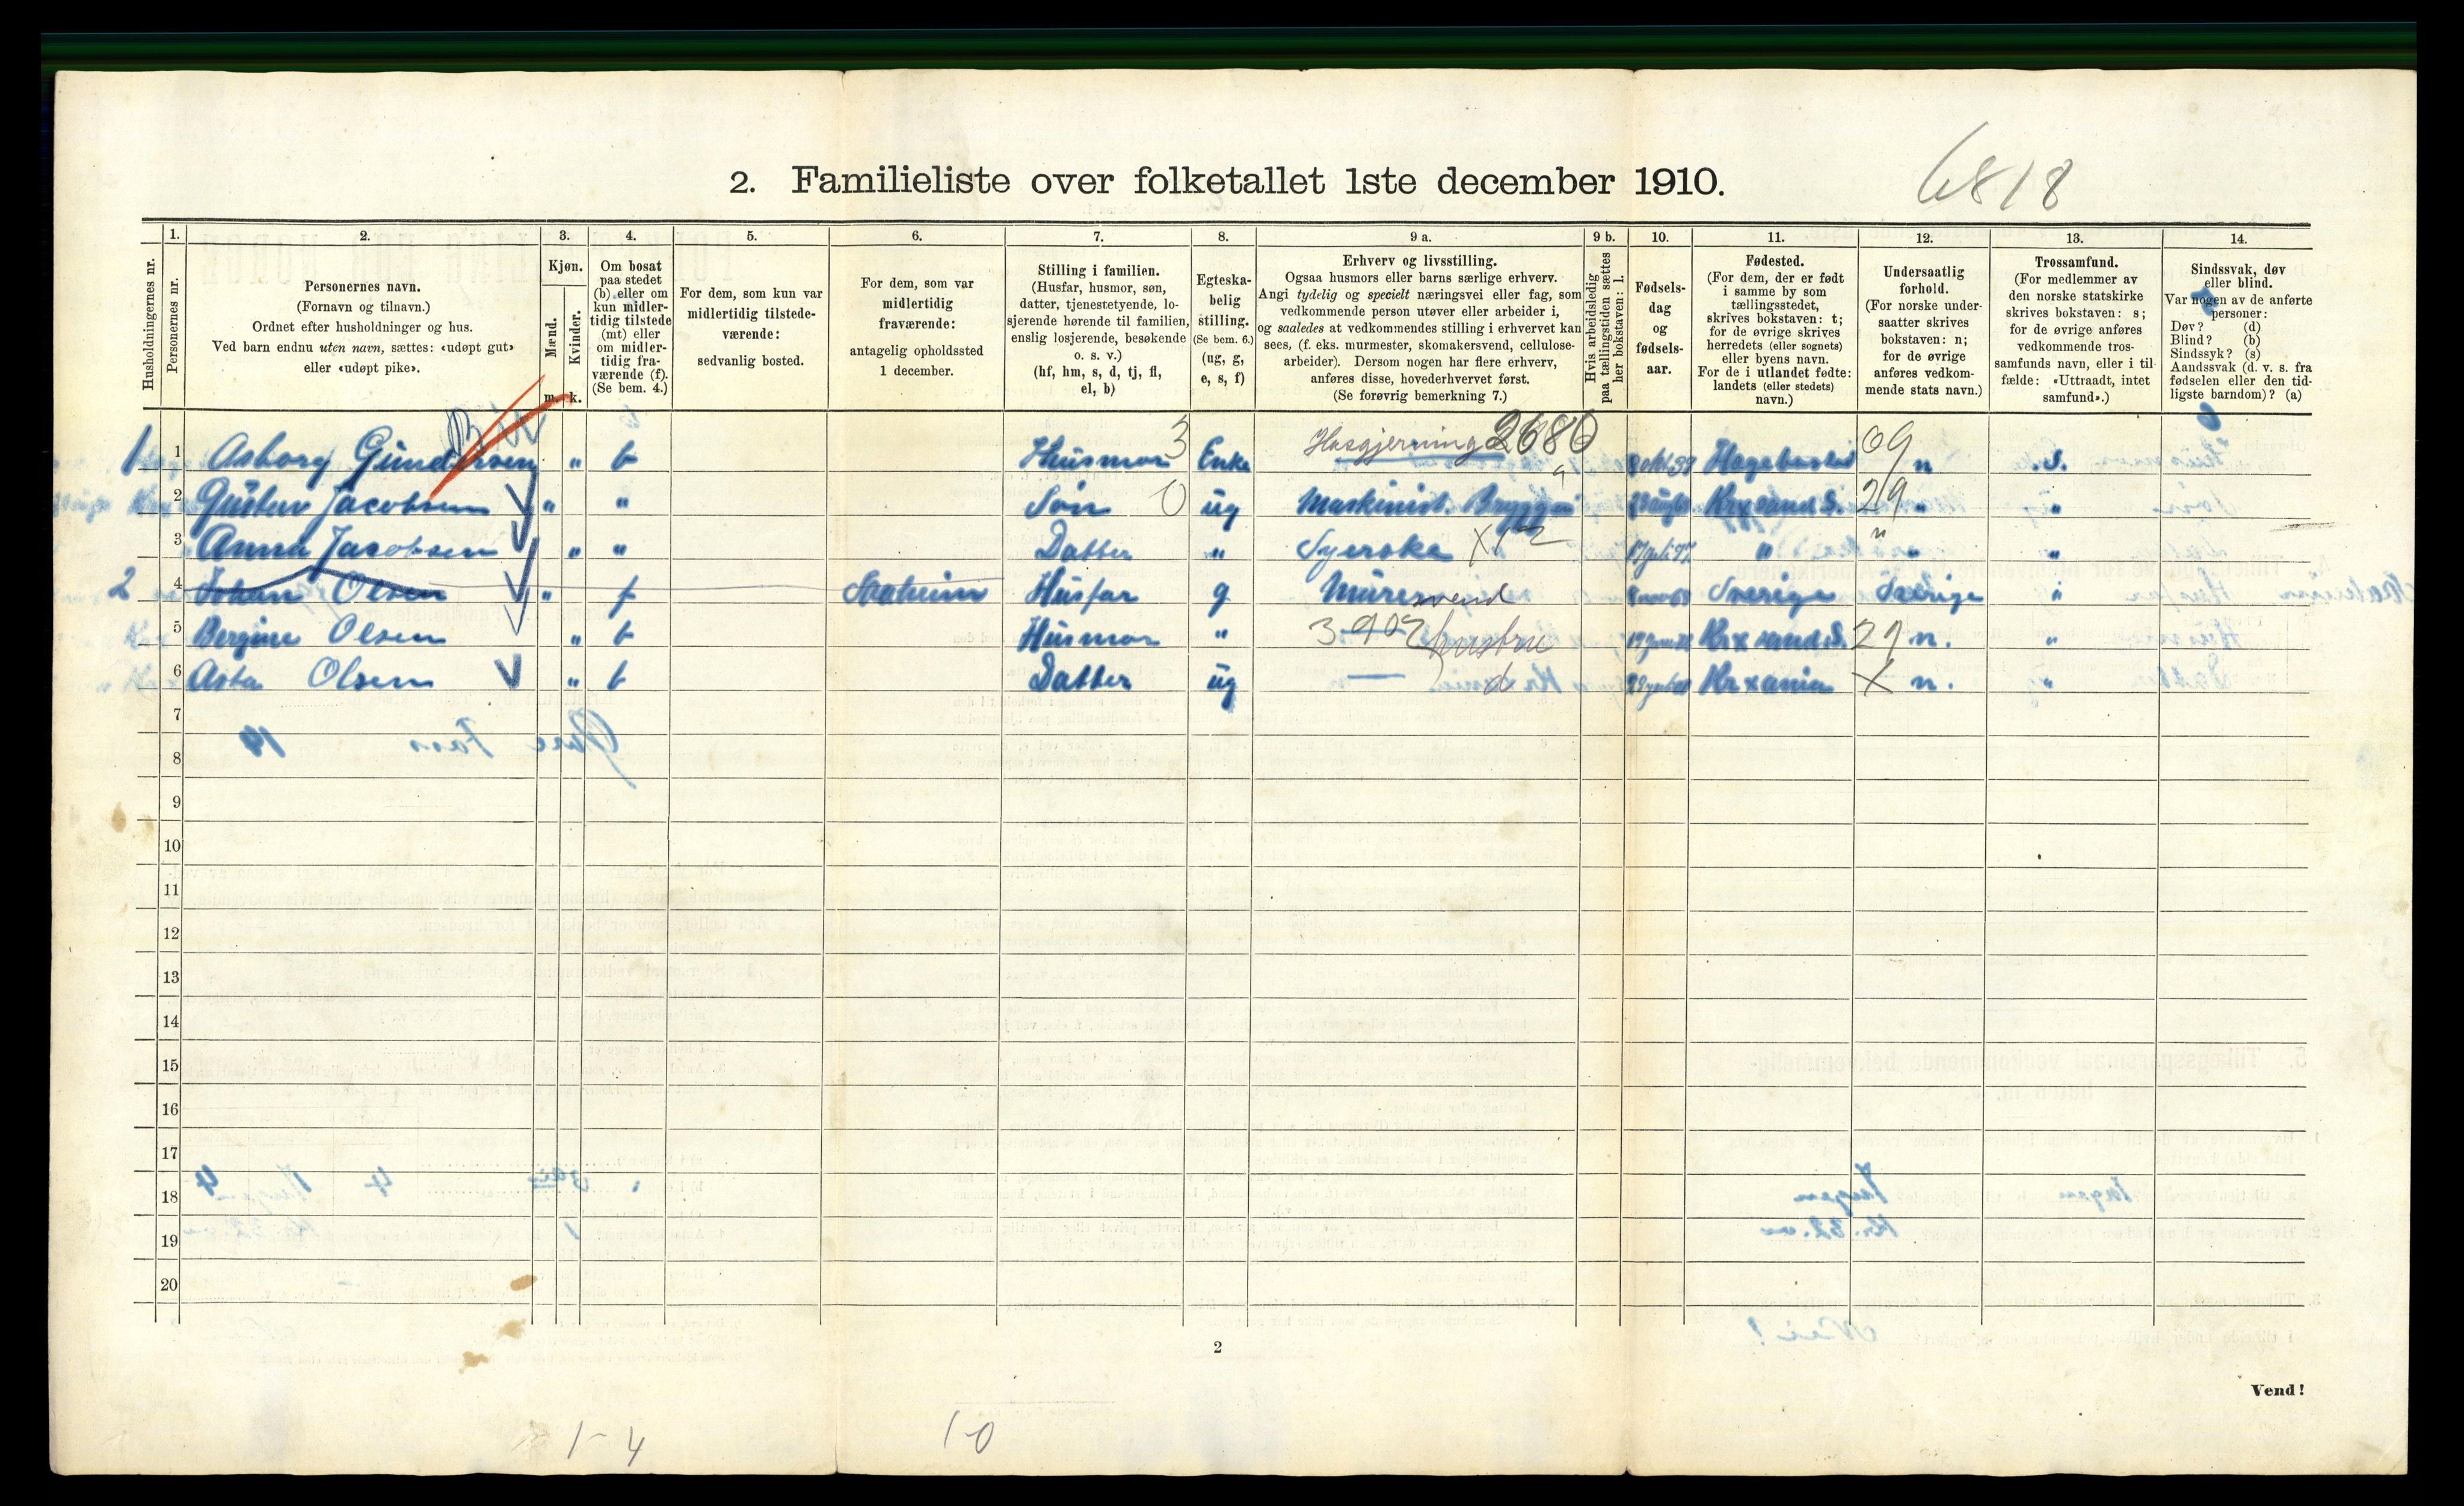 6818
2. Familieliste over folketallet 1ste december 1910.
1. 2. 3. 4. 5. 6. 7. 8. 9 a. 9 b. 10. 11. 12. 13. 14.
Husholdningernes nr.
Personernes nr.
Personernes navn.
(Fornavn og tilnavn.)
Ordnet efter husholdninger og hus.
Ved barn endnu uten navn, sættes: «udøpt gut»
eller «udøpt pike».
Kjøn.
Mænd.
Kvinder.
m. k.
Om bosat
paa stedet
(b) eller om
kun midler-
tidig tilstede
(mt) eller
om midler-
tidig fra-
værende (f).
(Se bem. 4.)
For dem, som kun var
midlertidig tilstede-
værende:
sedvanlig bosted.
For dem, som var
midlertidig
fraværende:
antagelig opholdssted
1 december.
Stilling i familien.
(Husfar, husmor, søn,
datter, tjenestetyende, lo-
sjerende hørende til familien,
enslig losjerende, besøkende
o. s. v.)
(hf, hm, s, d, tj, fl,
el, b)
Egteska-
belig
stilling.
(Se bem. 6.)
(ug, g,
e, s, f)
Erhverv og livsstilling.
Ogsaa husmors eller barns særlige erhverv.
Angi tydelig og specielt næringsvei eller fag, som
vedkommende person utøver eller arbeider i,
og saaledes at vedkommendes stilling i erhvervet kan
sees, (f. eks. murmester, skomakersvend, cellulose-
arbeider). Dersom nogen har flere erhverv,
anføres disse, hovederhvervet først.
(Se forøvrig bemerkning 7.)
Hvis arbeidsledig
paa tællingstiden sættes
her bokstaven: l.
Fødsels-
dag
og
fødsels-
aar.
Fødested.
(For dem, der er født
i samme by som
tællingsstedet,
skrives bokstaven: t;
for de øvrige skrives
herredets (eller sognets)
eller byens navn.
For de i utlandet fødte:
landets (eller stedets)
navn.)
Undersaatlig
forhold.
(For norske under-
saatter skrives
bokstaven: n;
for de øvrige
anføres vedkom-
mende stats navn.)
Trossamfund.
(For medlemmer av
den norske statskirke
skrives bokstaven: s;
for de øvrige anføres
vedkommende tros-
samfunds navn, eller i til-
fælde: «Uttraadt, intet
samfund».)
Sindssvak, døv
eller blind.
Var nogen av de anførte
personer:
Døv? (d)
Blind? (b)
Sindssyk? (s)
Aandssvak (d. v. s. fra
fødselen eller den tid-
ligste barndom)? (a)
1 1 Asborg Gundersen " b Husmor 3 Enke Husgjerning 2680 Hagebostad 09 n .S.
2 Gustav Jacobsen " " Søn 0 ug Maskinist. Bryggeri Krxsand S. 29 " "
3 Anna Jacobsen " " Datter " Syerske " " "
2 4 Johan Olsen " f Saaheim Husfar g Murersvend Sverige Sverige "
5 Bergine Olsen " b Husmor " 3902 hustru Krxsand S. 29 n. "
6 Asta Olsen " b Datter ug — d Krxania X n. "
7
8
9
10
11
12
13
14
15
16
17
18
19
20
2
Vend!
1-4 1-0